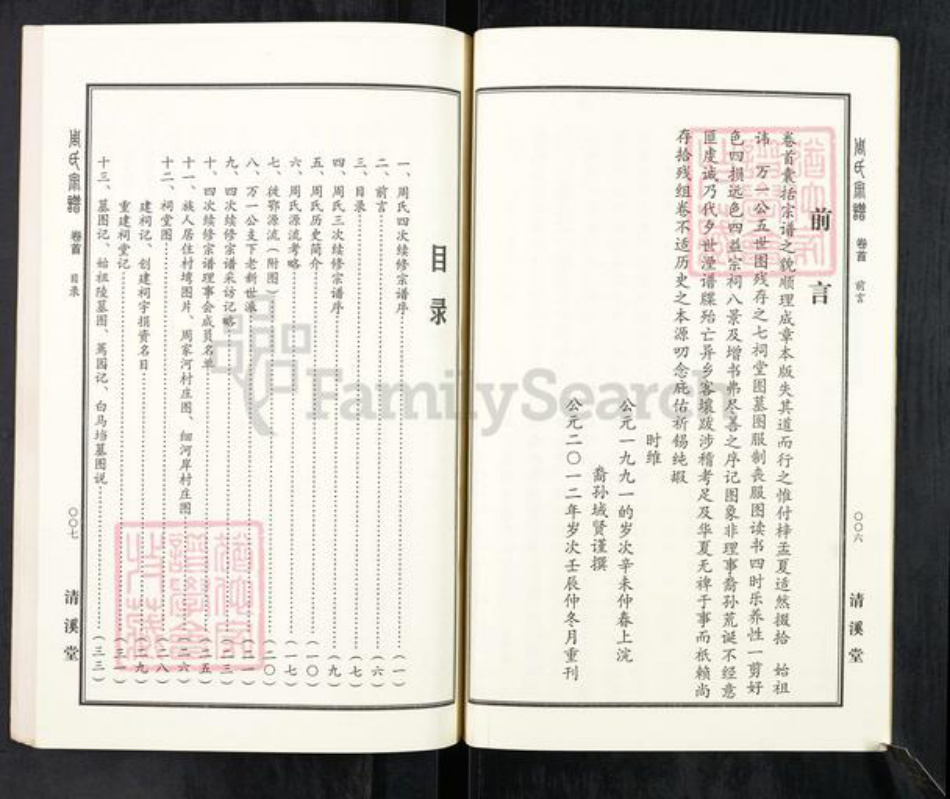 周氏宗譜 卷首 前言
〇〇六
清溪堂
前言
卷首囊括宗谱之貌顺理成章本版失其道而行之惟付梓孟夏适然掇拾 始祖
讳 万一公五世图残存之七祠堂图墓图服制丧服图读书四时乐养性一剪好
色四损远色四益宗祠八景及增书弗尽善之序记图象非理事裔孙荒诞不经意
匪虔诚乃代夕世湮谱牒殆亡异乡客壤跋涉稽考足及华夏无裨于事而祇赖尚
存拾残组卷不适历史之本源叨念庇佑祈锡纯嘏
时维
公元一九九一的岁次辛未仲春上浣
裔孙城贤谨撰
公元二〇一二年岁次壬辰仲冬月重刊
目录
一、周氏四次续修宗谱序（一）
二、前言（六）
三、目录（七）
四、周氏三次续修宗谱序（九）
五、周氏历史简介（一〇）
六、周氏源流考略（一七）
七、徙鄂源流（附图）（二〇）
八、万一公支下老新世派（二一）
九、四次续修宗谱采访记略（二三）
十、四次续修宗谱理事会成员名单（二五）
十一、族人居住村塆图片、周家河村庄图、细河岸村庄图（二六）
十二、祠堂图（二八）
建祠记、创建祠宇捐资名目（二九）
重建祠堂记（三一）
十三、墓图记、始祖陵墓图、茑园记、白马垱墓图说（三三）
周氏宗譜 卷首 目录
〇〇七
清溪堂
FamilySearch